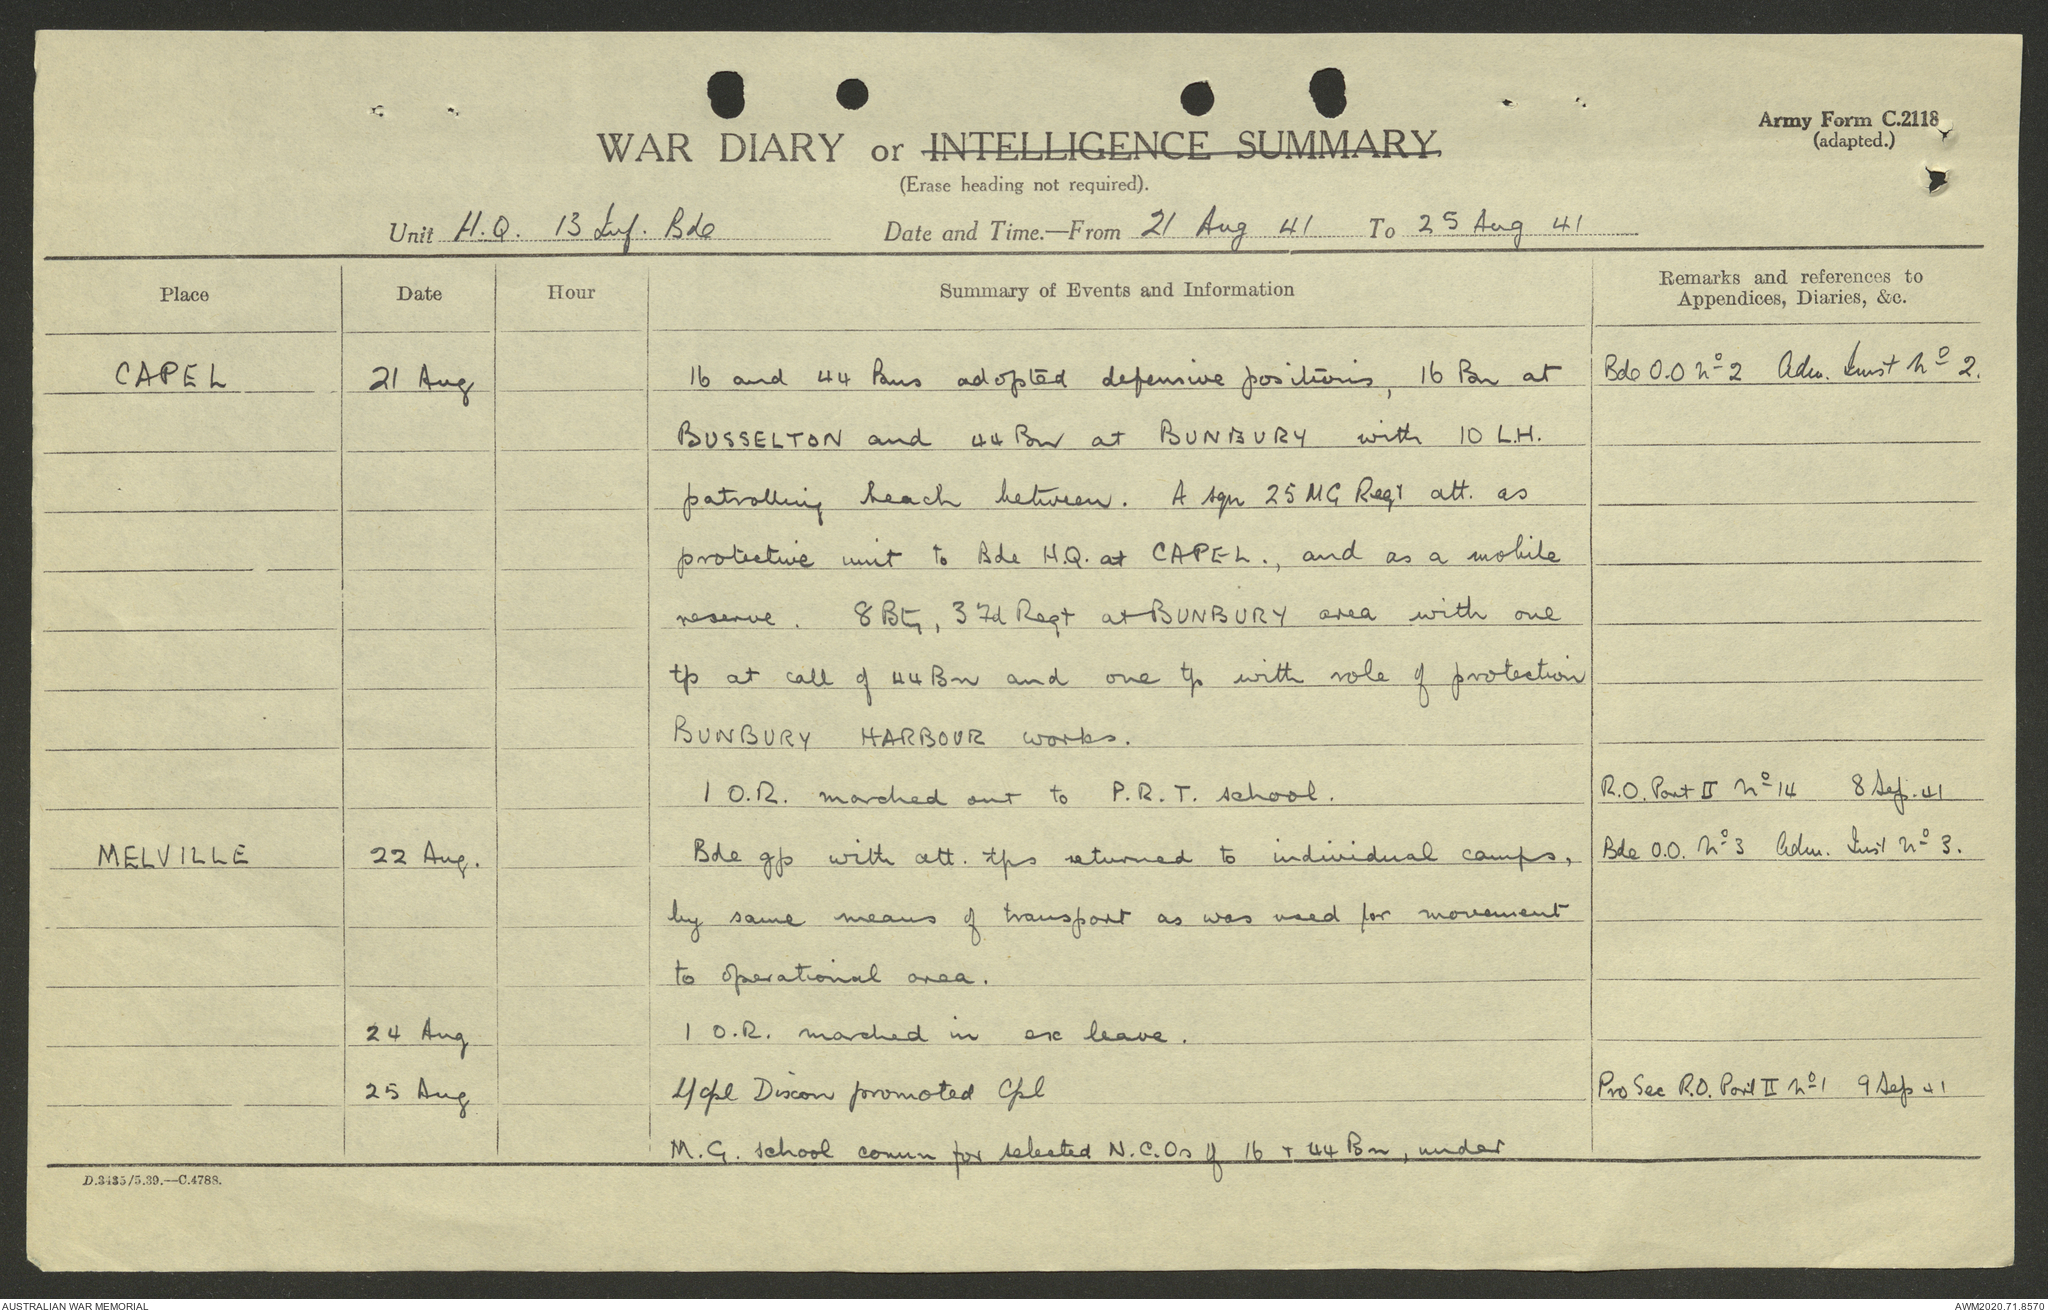 Army Form C.2118
(adapted.)
WAR DIARY or INTELLIGENCE SUMMARY.
(Erase heading not required).
Unit H.Q. 13 Inf. Bde Date and Time.—From 21 Aug 41 To 25 Aug 41
Place Date Hour Summary of Events and Information Remarks and references to
Appendices, Diaries, &c.
CAPEL 21 Aug 16 and 44 Bns adopted defensive positions, 16 Bn at Bde O.O Nº 2 Adm. Inst Nº 2.
BUSSELTON and 44 Bn at BUNBURY with 10 L.H.
patrolling beach between. A sqn 25 MG Regt att. as
protective unit to Bde H.Q. at CAPEL., and as a mobile
reserve. 8 Bty, 3 Fd Regt at BUNBURY area with one
tp at call of 44 Bn and one tp with role of protection
BUNBURY HARBOUR works.
1 O.R. marched out to P.R.T. school. R.O. Part II Nº 14 8 Sep. 41
MELVILLE 22 Aug. Bde gp with att. tps returned to individual camps, Bde O.O. Nº 3 Adm. Inst Nº 3.
by same means of transport as was used for movement
to operational area.
24 Aug 1 O.R. marched in ex leave.
25 Aug L/Cpl Dixon promoted Cpl Pro Sec R.O. Part II Nº 1 9 Sep 41
M.G. school comm for selected N.C.Os of 16 + 44 Bn, under
D.3435/5.39.—C.4788.
AUSTRALIAN WAR MEMORIAL AWM2020.71.8570